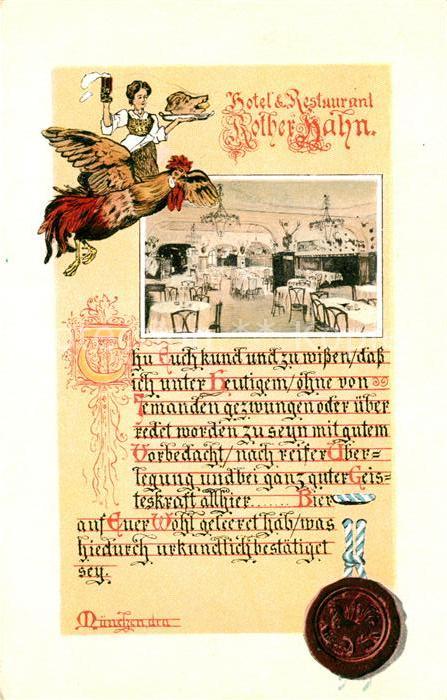 Hotel & Restaurant
Rother Hahn.
Thu Euch kund und zu wißen/daß
ich unter Heutigem/ohne von
Jemanden gezwungen oder über
redet worden zu seyn mit gutem
Vorbedacht/nach reifer Über=
legung und bei ganz guter Geis=
teskraft allhier........Bier
auf Euer Wohl geleeret hab/was
hiedurch urkundlich bestätiget
sey.
München, den